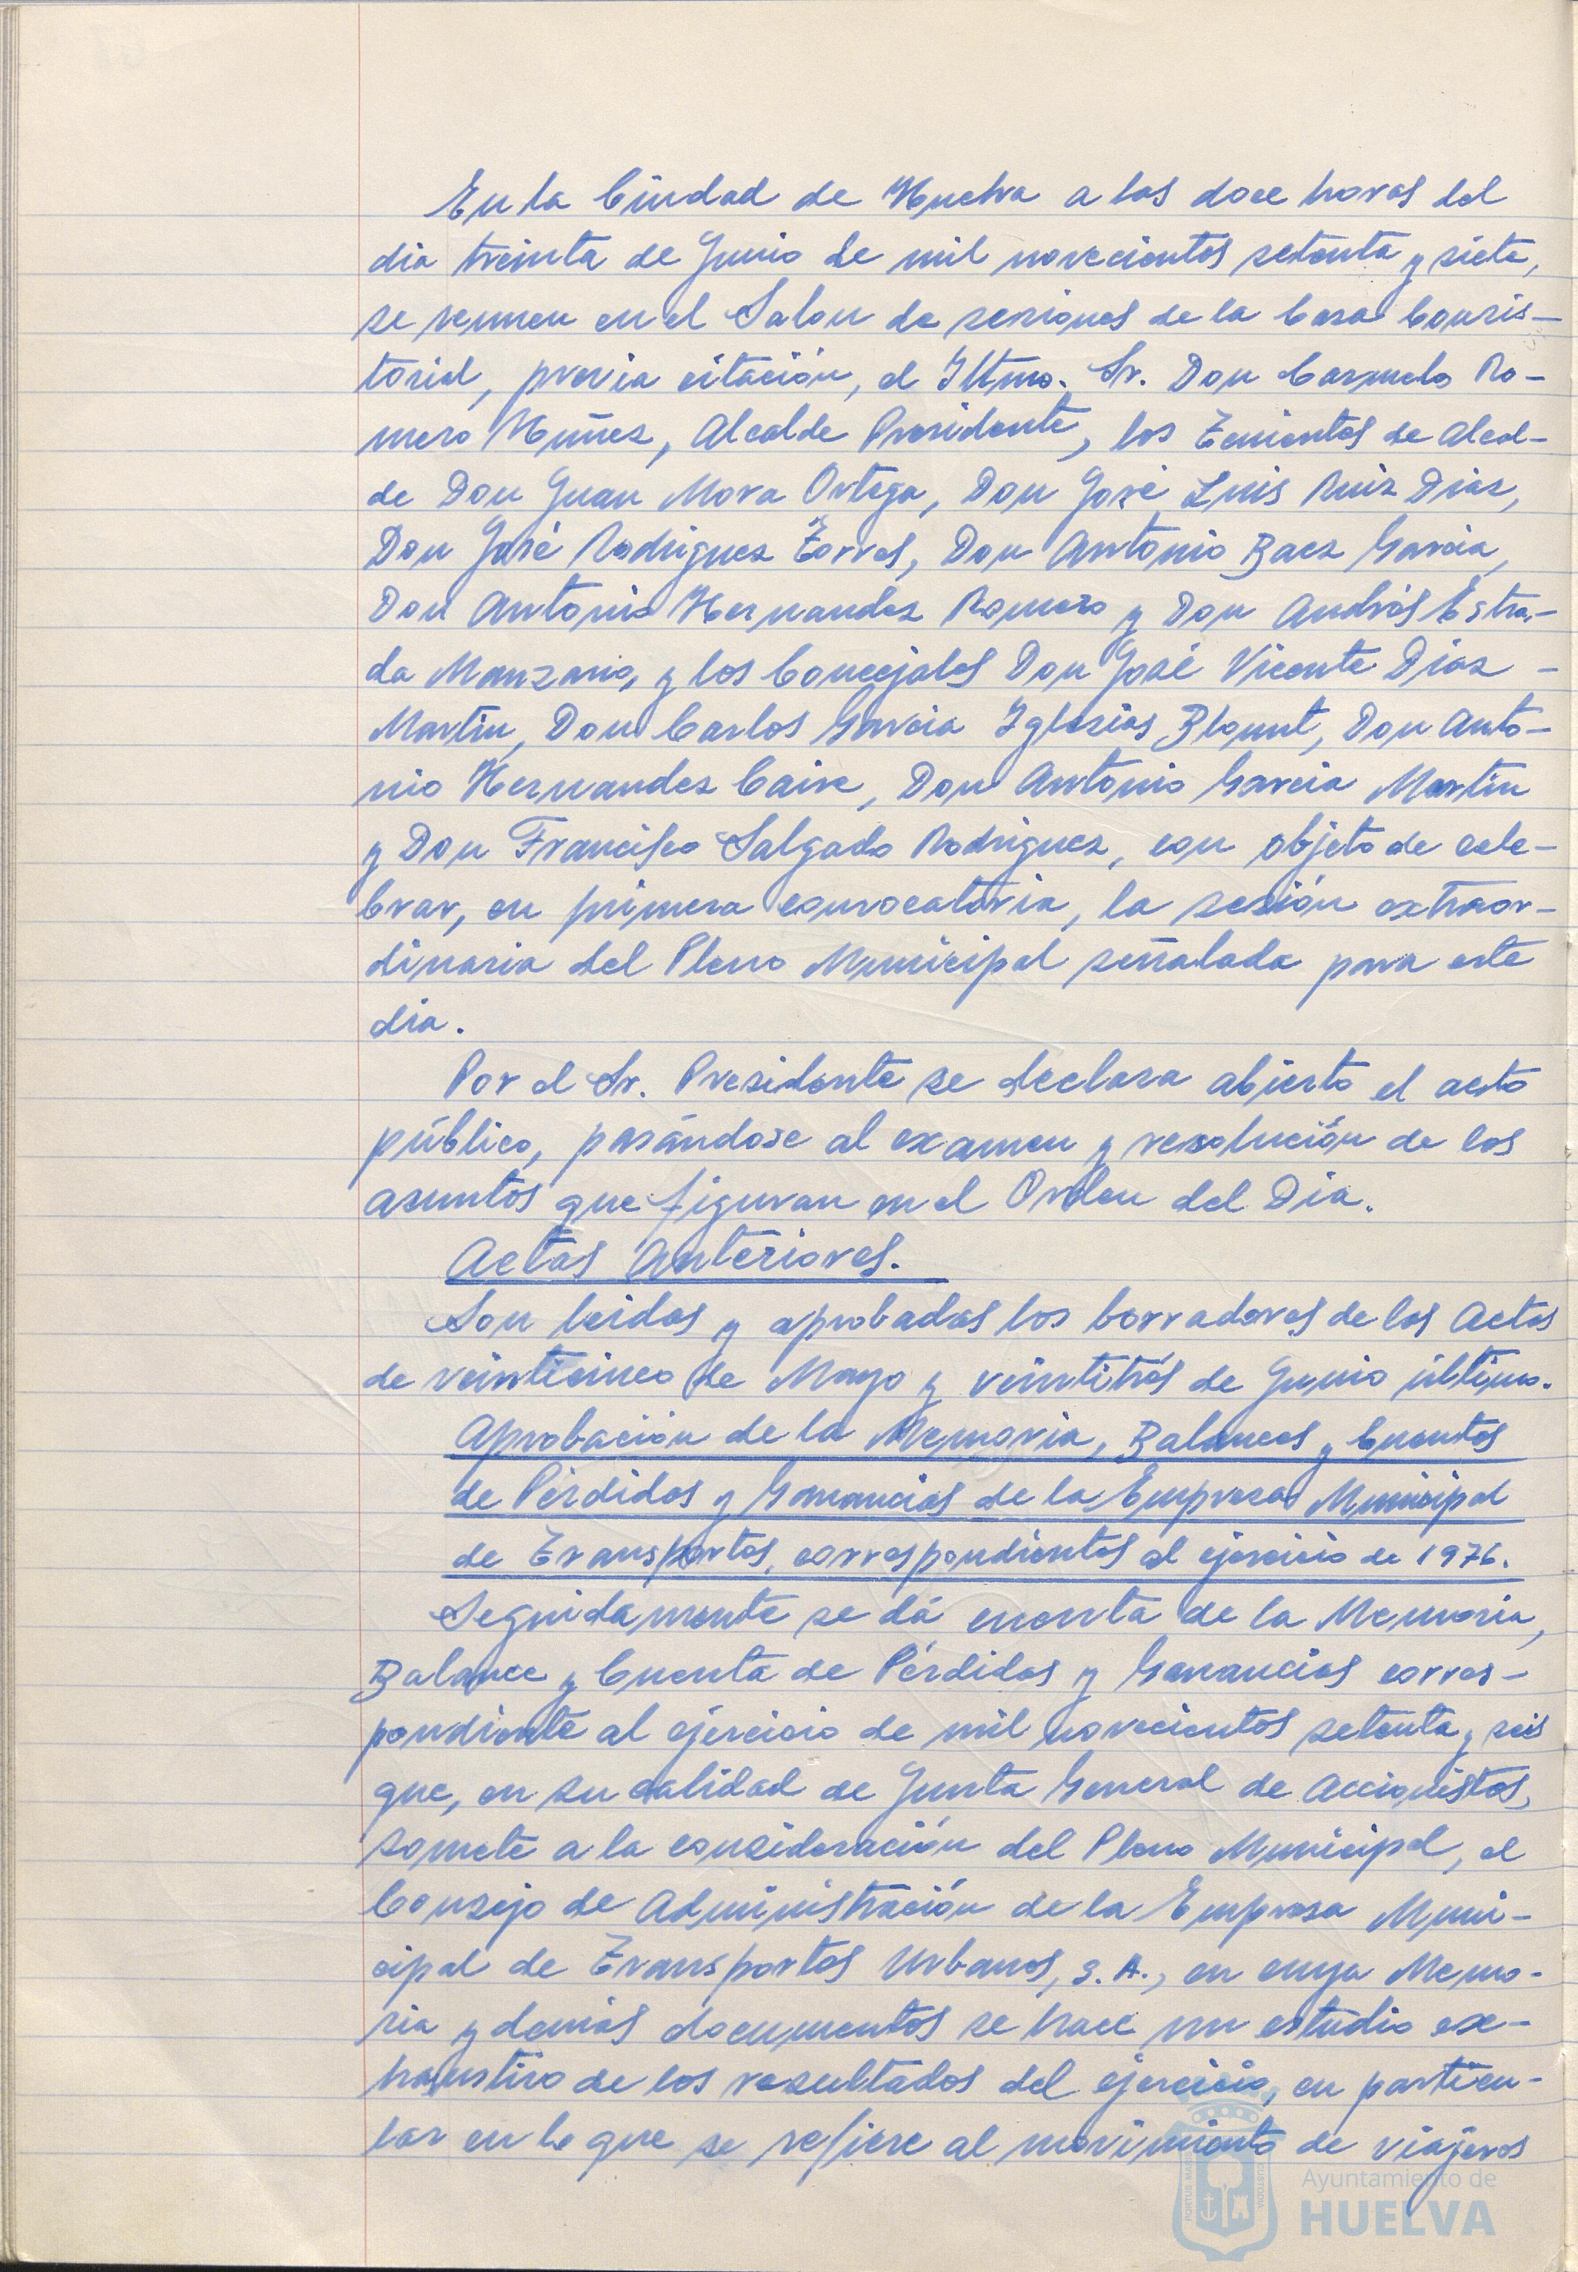 En la Ciudad de Huelva a las doce horas del
dia treinta de Junio de mil novecientos setenta y siete,
se reunen en el Salon de sesiones de la Casa Consis-
torial, previa citación, el Iltmo. Sr. Don Carmelo Ro-
mero Muñez, Alcalde Presidente, los Tenientes de Alcal-
de Don Juan Mora Ortega, Don José Luis Ruiz Diaz,
Don José Rodriguez Torres, Don Antonio Baez Garcia,
Don Antonio Hernandez Romero y Don Andrés Estra-
da Manzano, y los Concejales Don José Vicente Diaz -
Martin, Don Carlos Garcia Iglesias Blount, Don Anto-
nio Hernandez Caire, Don Antonio Garcia Martin
y Don Francisco Salgado Rodriguez, con objeto de cele-
brar, en primera convocatoria, la sesión extraor-
dinaria del Pleno Municipal señalada para este
dia.
Por el Sr. Presidente se declara abierto el acto
público, pasándose al examen y resolución de los
asuntos que figuran en el Orden del Dia.
Actas Anteriores.
Son leidas y aprobadas los borradores de las Actas
de veinticinco de Mayo y veintitrés de Junio último.
Aprobación de la Memoria, Balances y Cuentas
de Pérdidas y Ganancias de la Empresa Municipal
de Transportes, correspondientes al ejercicio de 1976.
Seguidamente se dá cuenta de la Memoria,
Balance y Cuenta de Pérdidas y Ganancias corres-
pondiente al ejercicio de mil novecientos setenta y seis
que, en su calidad de Junta General de Accionistas,
somete a la consideración del Pleno Municipal, el
Consejo de Administración de la Empresa Muni-
cipal de Transportes Urbanos, S.A., en cuya Memo-
ria y demás documentos se hace un estudio ex-
haustivo de los resultados del ejercicio, en particu-
lar en lo que se refiere al movimiento de viajeros
Ayuntamiento de
HUELVA